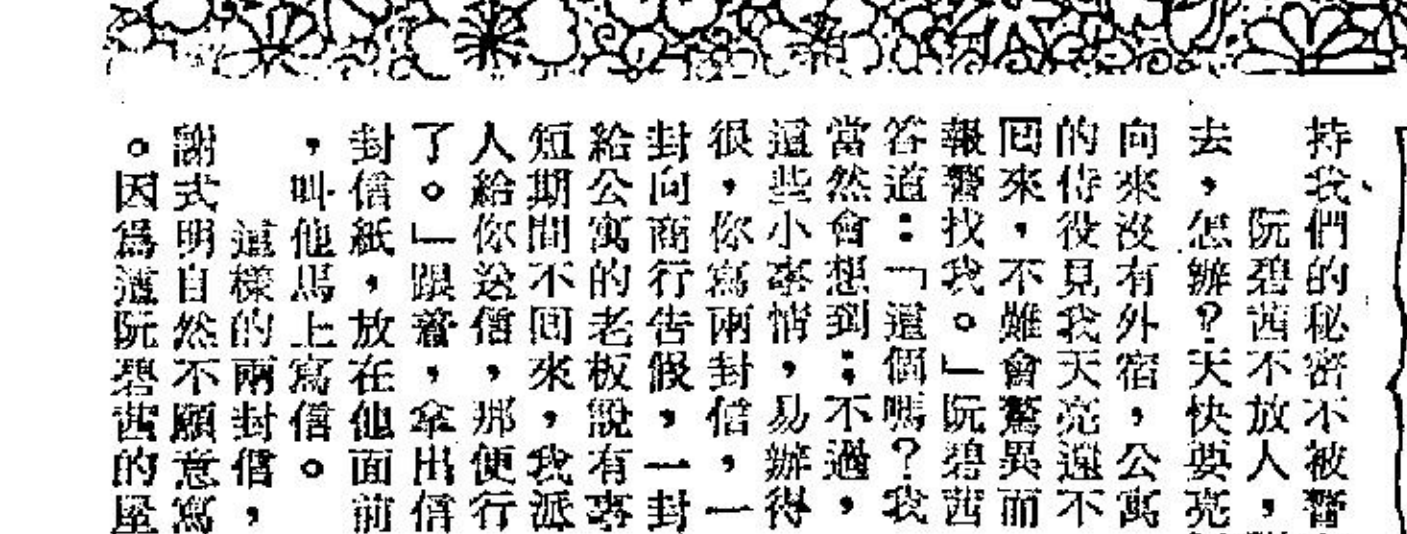 持我們的秘密不被警
阮碧茜不放人，
去，怎辦？天快要亮
向來沒有外宿，公寓
的侍役見我天亮還不
回來，不難會驚異而
報警找我。」阮碧茜
答道：「這個嗎？我
當然會想到：不過，
這些小事情，易辦得
很，你寫兩封信，一
封向商行告假，一封
給公寓的老板說有事
短期間不回來，我派
人給你送信，那便行
了。」跟着，拿出信
封信紙，放在他面前
，叫他馬上寫信。
這樣的兩封信，
謝式明自然不願意寫
。因爲這阮碧茜的屋